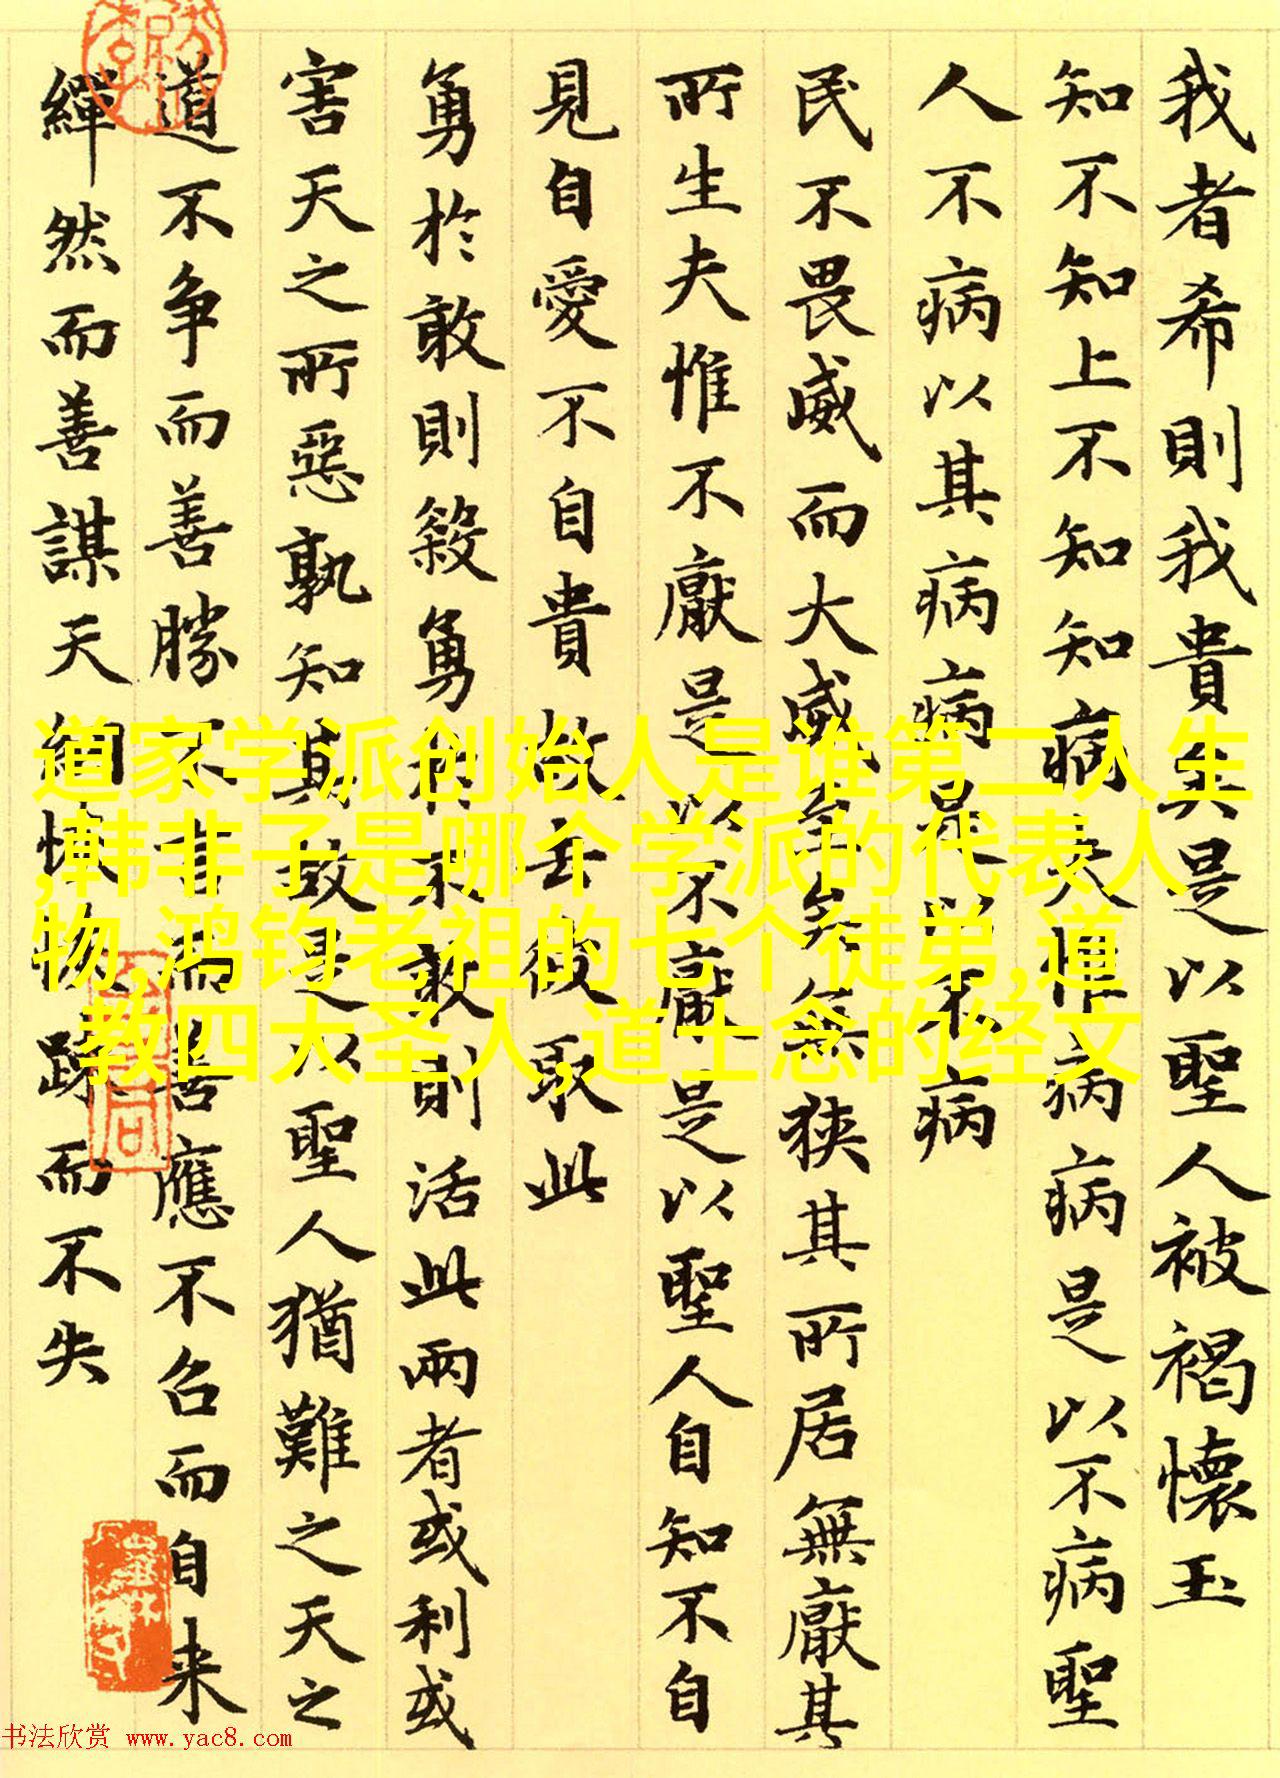 我者希則我貴矣是以聖人被褐懷玉
知不知上不知知病夫惟病病是以不病聖
人不病以其病病是以不病
民不畏威而大威至矣無狹其所居無厭其
所生夫惟不厭是以不厭是以聖人自知不自
見自愛不自貴故去彼取此
勇於敢則殺勇於不敢則活此兩者或利或
害天之所惡孰知其故是以聖人猶難之天之
道不争而善勝不言而善應不召而自来
繟然而善謀天網恢恢踈而不失
道家学派创始人是谁第二人生
,韩非子是哪个学派的代表人
物,鸿钧老祖的七个徒弟,道
教四大圣人,道士念的经文
书法欣赏 www.yac8.com